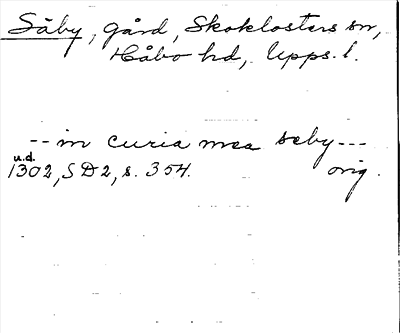 Säby, gård, Skoklosters sn,
Håbo hd, Upps. l.
-- in curia mea seby ---
u.d.
1302, SD2, s. 354. orig.